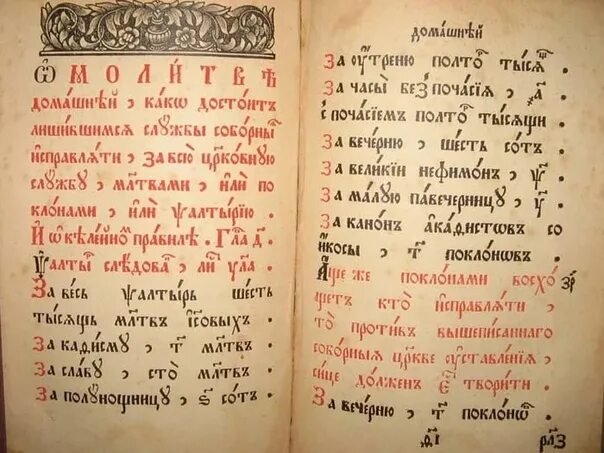 Ѡ МОЛИ́ТВѢ
дома́шнѣй , ка́кѡ досто́итъ
лиши́вшимся слꙋ́жбы собо́рныѧ
и҆справлѧ́ти , за всю̀ цр҃ко́внꙋю
слꙋ́жбꙋ , мл҃твами , и҆лѝ по
кло́нами , и҆лѝ ѱалты́рїю .
И҆ ѡ҆ келе́йноⷨ пра́вилѣ . Глⷡ҇а д҃ .
Ѱалты́ⷬ слѣ́дова , лиⷭ҇ ул҃а .
За ве́сь ѱалты́рь ше́сть
ты́сящъ мл҃твъ і҆сⷭ҇овыхъ .
За каѳи́смꙋ , т҃ мл҃твъ .
За сла́вꙋ , сто̀ мл҃твъ .
За полꙋ́нощницꙋ , ѕ҃ со́тъ .
дома́шнѣй
За ᲂу҆́треню полтоⷬ ты́сѧⷳ .
За часы̀ беⷥ поча́сїѧ , ҂а҃ .
с поча́сїемъ полтоⷬ ты́сѧщи .
За вече́рню , ше́сть со́тъ .
За вели́кїй нефимо́нъ , ѱ҃ .
За ма́лꙋю павече́рницꙋ , у҃ .
За кано́нъ а҆ка́ѳистовъ со
и҆́косы , т҃ покло́новъ .
А҆́ще же покло́нами восхо́
щетъ кто̀ и҆справлѧ́ти ,
то̀ про́тивъ вышепи́саннаго
собо́рныѧ цр҃кве ᲂу҆ставле́нїѧ ,
си́це до́лженъ є҆́сⷭ҇ твори́ти .
За вече́рню , т҃ покло́нѡⷡ .
рл҃з